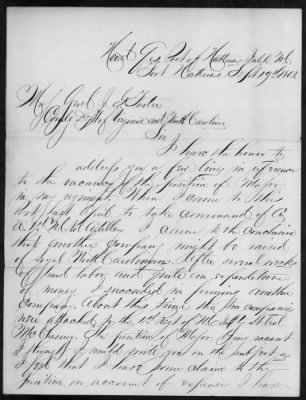 Head Qrs Post of Hatteras Inlet N.C.
Fort Hatteras Sept 19th 1863
Maj Genl J G Foster
Comdg Dept of Virginia and North Carolina
Sir
I have the honor to
address you a few lines in reference
to the vacancy of the position of Major
in my regiment. When I came to this
post last April to take command of Co
A 1st N.C. I came to the conclusion
that another company might be raised
of loyal North Carolinians. After several weeks
of hard labor and quite an expenditure
of money I succeeded in forming another
company. About this time the two companies
were attached to the 1st Regt of N.C.
The position of Major being vacant
I thought I would write you on the subject as
I feel that I have some claim to the
position on account of expense I have